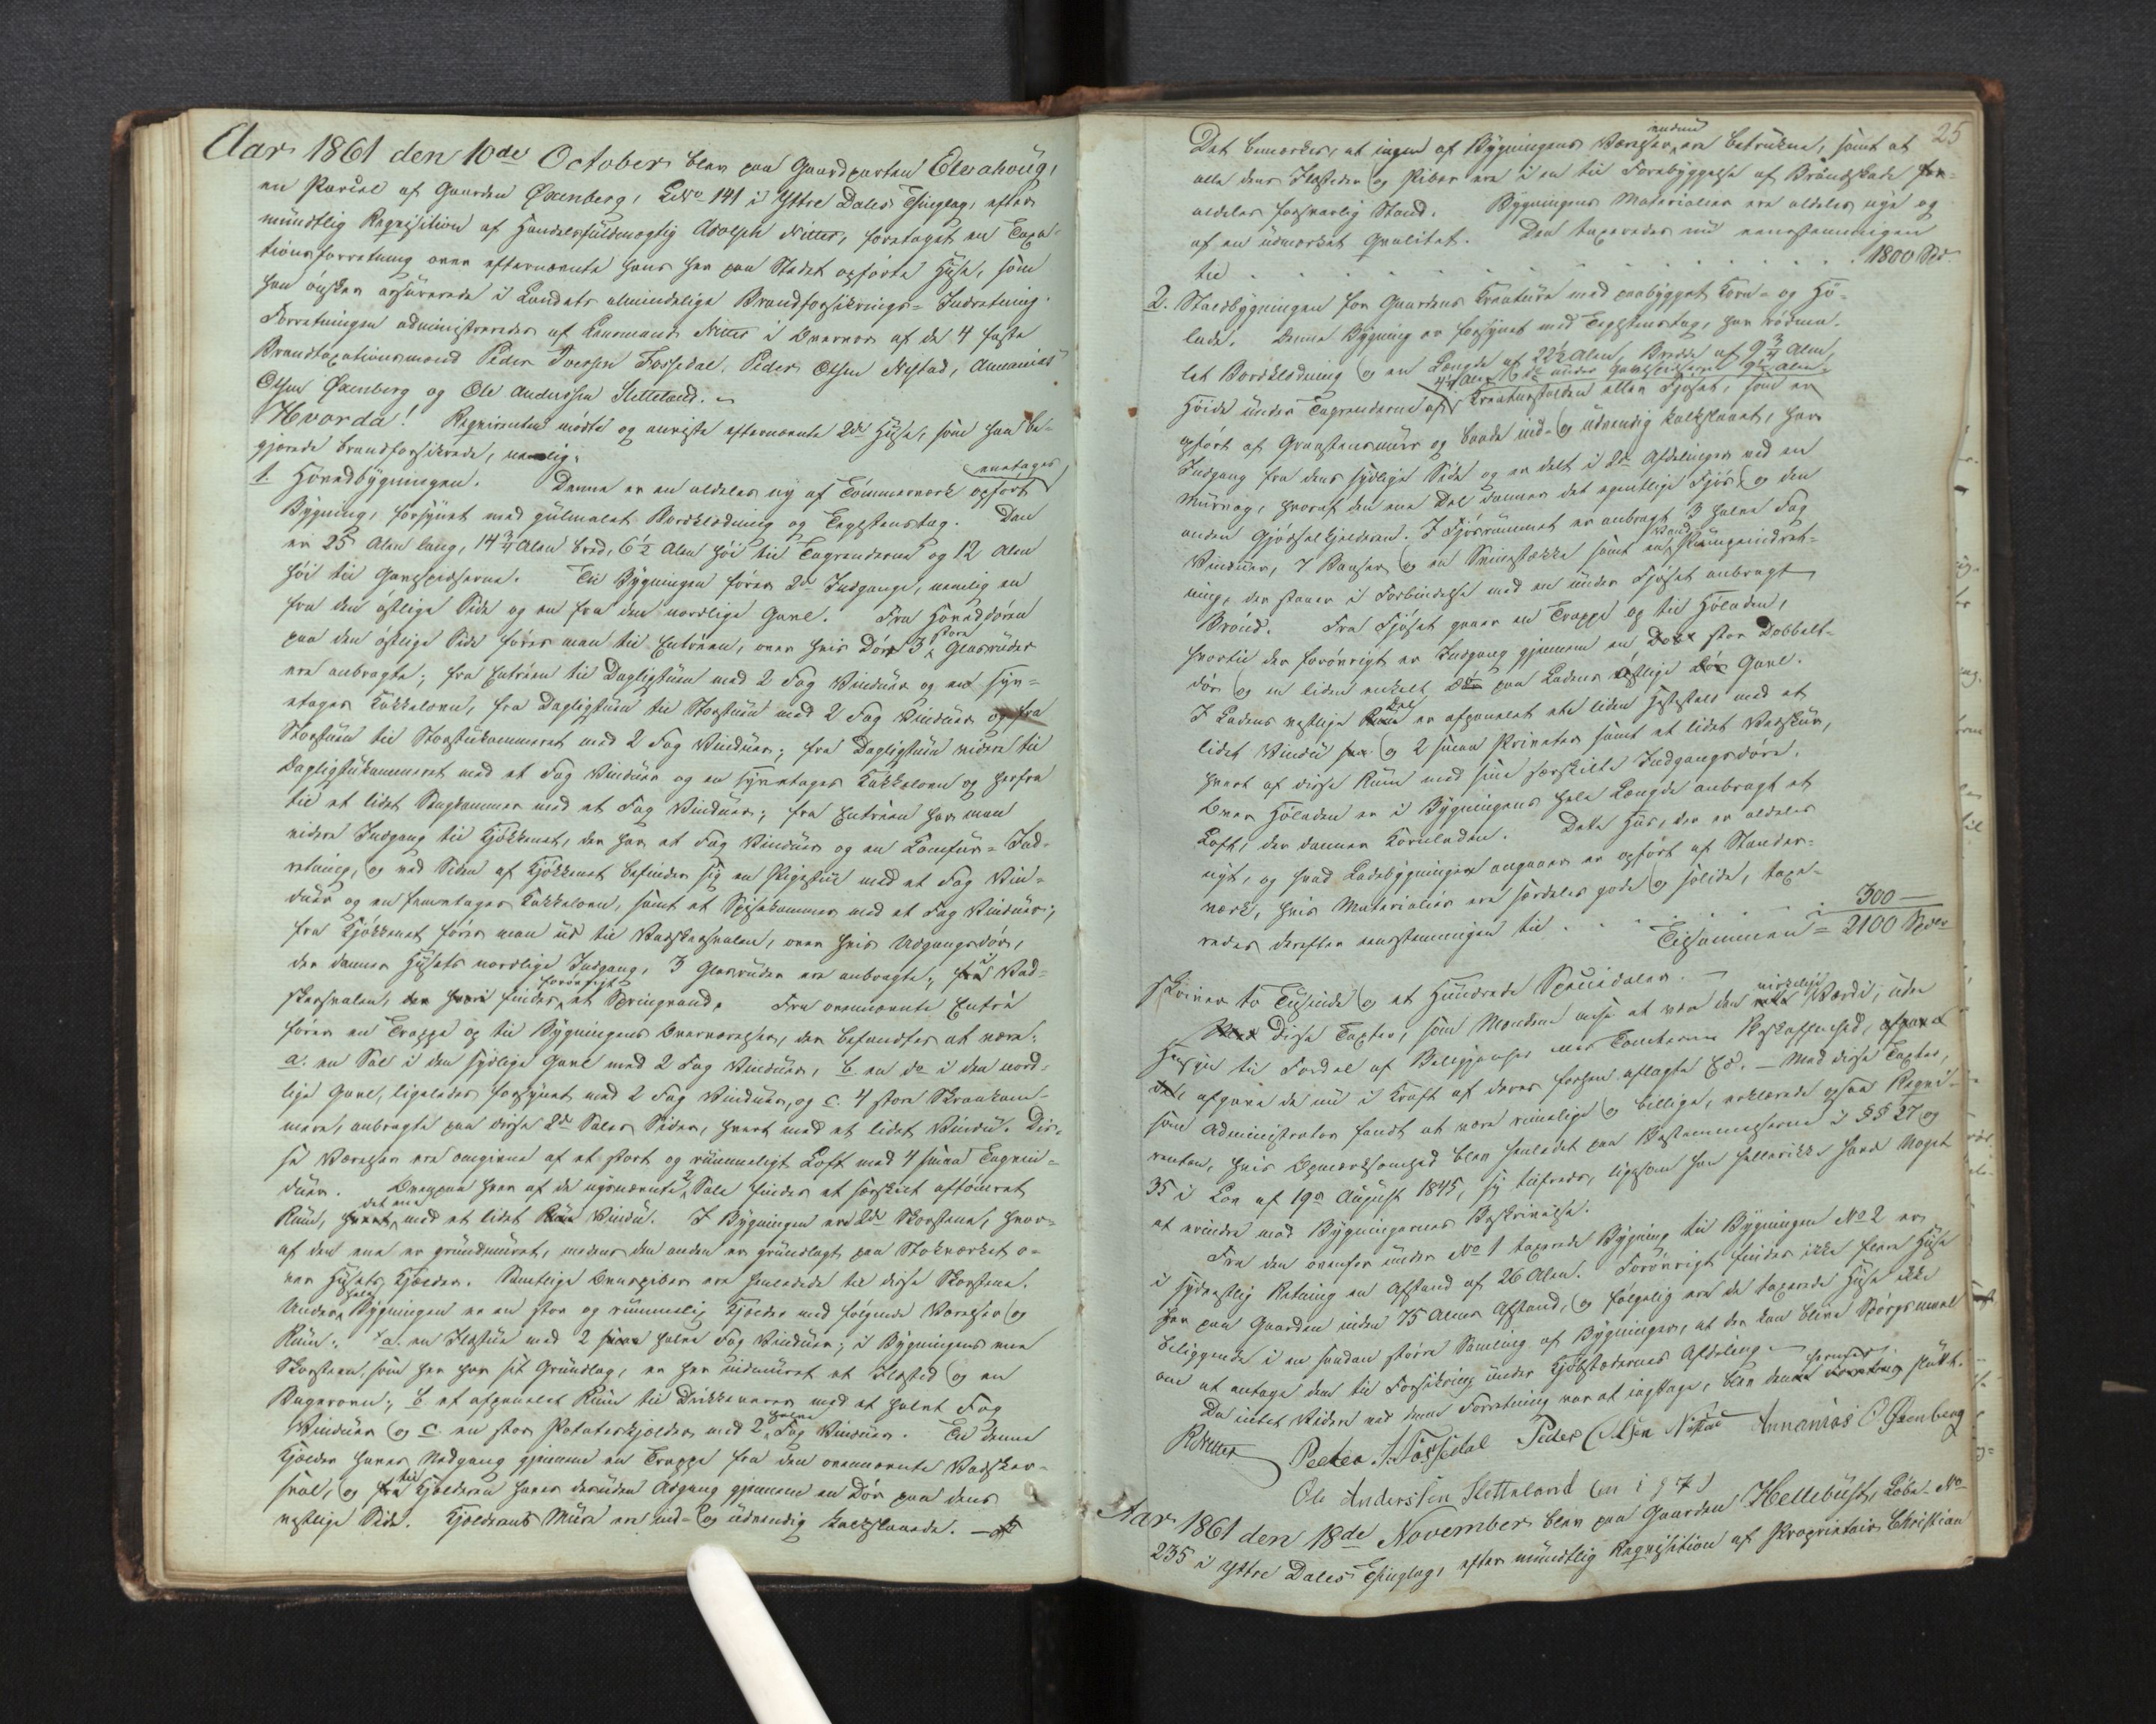 Aar 1861 den 10de October blev paa Gaardparten Elvahoug,
en Parcel af Gaarden Øxenberg, L No 141 i Yttre Dales Thinglag, efter
mündtlig Reqvisition af Handelsfuldmægtig Adolph Nitter, foretaget en Taxa-
tionsforretning over efternævnte hans her paa Stedet opførte Huse, som
han ønsker assürerede i Landets almindelige Brandforsikrings-Indretning.
Forretningen administreredes af Lensmand Nitter i Overvær af de 4 faste
Brandtaxationsmænd Peder Iversen Fossedal, Peder Olsen Nystad, Annanias
Olsen Øxenberg og Ole Andersen Sletteland.
Hvorda! Reqvirenten mødte og anviste efternævnte 2de Huse, som han be-
gjærede brandforsikrede, nemlig:
1. Hovedbygningen. Denne er en aldeles ny af Tømmerværk opført enetages
Bygning, forsynet med gülmalet Bordklædning og Teglsteenstag. Den
er 25 Alen lang, 14 3/4 Alen bred, 6 1/2 Alen høi til Tagrenderne og 12 Alen
høi til Gavlspidserne. Til Bygningen fører 2de Indgange, nemlig en
fra den østlige Side og en fra den nordlige Gavl. Fra Hoveddøren
paa den østlige Side fører man til Entréen, over hvis Dør 3 store Glasrüder
ere anbragte; fra Entréen til Dagligstüen med 2 Fag Vindüer og en fyr-
etages Kakkelovn, fra Dagligstüen til Storstüen med 2 Fag Vindüer og fra
Storstüen til Storstükammeret med 2 Fag Vindüer; fra Dagligstüen videre til
Dagligstükammeret med et Fag Vindüer og en tyvetages Kakkelovn og herfra
til et lidet Sengkammer med et Fag Vindüer; fra Entréen har man
videre Indgang til Kjøkkenet, der har et Fag Vindüer og en Komfür-Ind-
retning, og ved Siden af Kjøkkenet befinder sig en Pigestüe med et Fag Vin-
düer og en femetages Kakkelovn, samt et Spisekammer med et Fag Vindüer;
fra Kjøkkenet fører man üd til Vaskersvalen, over hvis Udgangsdør,
der danner Husets nordlige Indgang, 3 Glasrüder ere anbragte; i Vad-
skersvalen, der findes forøvrigt et Springvand. Fra ovennævnte Entré
fører en Trappe op til Bygningens Overværelser, der befandtes at være:
a. en Sal i den sydlige Gavl med 2 Fag Vindüer, b en do i den nord-
lige Gavl, ligeledes forsynet med 2 Fag Vindüer, og c. 4 store Skraakam-
mere, anbragte paa disse 2de Sales Sider, hvert med et lidet Vindü. Dis-
se Værelser ere omgivne af et stort og rümmeligt Loft med 4 smaa Tagvin-
düer. Ovenpaa hver af de nysnævnte 2 Sale findes et særskilt aftømret
Rüm, det ene med et lidet Vindü. I Bygningen ere 2de Skorstene, hvor-
af den ene er gründmüret, medens den anden er gründlagt paa Stokværket o-
ver Husets Kjælder. Samtlige Ovnspiber ere henledede til disse Skorstene.
Under hele Bygningen er en stor og rümmelig Kjelder med følgende Værelser og
Rüm: a. en Ildstüe med 2 halve Fag Vindüer; i Bygningens ene
Skorsteen, som her har sit Gründlag, er her indmüret et Ildsted og en
Bagerovn; b et afpanelet Rüm til Drikkevarer med et halvt Fag
Vindüer og c en stor Potetkjelder med 2 halve Fag Vindüer. Til denne
Kjelder haves Nedgang gjennem en Trappe fra den ovennævnte Vadsker-
sval, og til Kjelderen haves desüden Adgang gjennem en Dør paa dens
vestlige Side. Kjelderens Müre ere ind- og üdvendig kalkslaaede.
25
Det bemærkes, at ingen af Bygningens Værelser endnü ere betrükne, samt at
alle dens Ildsteder og Piber ere i en til Forebyggelse af Brandskade
aldeles forsvarlig Stand. Bygningens Materialier ere aldeles nye og
af en üdmærket Qvalitet. Den taxeredes nü eenstemmigen
til . . . . . . . . . . . . . . . . 1800 Spd.
2. Staldbygningen for Gaardens Kreatüre med paabygget Korn- og Hø-
lade. Denne Bygning er forsynet med Teglsteenstag, har rødma-
let Bordklædning og en Længde af 22 1/2 Alen, Bredde af 9 3/4 Alen,
Høide ünder Tagrenderne af 4 1/4 Alen, do ünder Gavlspidserne 9 1/2 Alen.
Kreaturstalden eller Fjøset, som er
opført af Graasteensmüür og baade ind- og üdvendig kalkslaaet, har
Indgang fra dens sydlige Side og er delt i 2de Afdelinger ved en
Mürvæg, hvoraf den ene Del danner det egentlige Fjøs og den
anden Gjødselkjelderen. I Fjøsrümmet er anbragt 3 halve Fag
Vindüer, 7 Baaser og en Svinestække samt en Vandpumpeindret-
ning, der staaer i Forbindelse med en ünder Fjøset anbragt
Brønd. Fra Fjøset gaaer en Trappe op til Høladen,
hvortil der forøvrigt er Indgang gjennem en stor Dobbelt-
dør og en liden enkelt do paa Ladens østlige Gavl.
I Ladens vestlige Del er afpanelet ete liden Hestestald med et
lidet Vindü og 2 smaa Privater samt et lidet Vedskür,
hvert af disse Rüm med sine særskilte Indgangsdøre.
Over Høladen er i Bygningens hele Længde anbragt et
Loft, der danner Kornladen. Dette Hüs, der er aldeles
nyt, og hvad Ladebygningen angaaer er opført af Stander-
værk, hvis Materialier ere særdeles gode og solide, taxe-
redes derefter eenstemmigen til . . . . . . 300 —
Tilsammen = 2100 Spdlr
skriver to Tüsinde og et Hündrede Speciedaler. —
Disse Taxter, som Mændene ansee at være den virkelige Værdi, üden
Hensyn til Fordel af Beliggenhed eller Tomternes Beskaffenhed,
afgave de nü i Kraft af deres forhen aflagte Ed. — Med disse Taxter,
som Administrator fandt at være rimelige og billige, erklærede ogsaa Reqvi-
renten, hvis Opmærksomhed blev henledet paa Bestemmelserne i §§ 27 og
35 i Lov af 19de August 1845, sig tilfreds, ligesom han hellerikke havde Noget
at erindre mod Bygningernes Beskrivelse.
Fra den ovenfor ünder No 1 taxerede Bygning til Bygningen No 2 er
i sydvestlig Retning en Afstand af 26 Alen. Forøvrigt findes ikke flere Huse
her paa Gaarden inden 75 Alens Afstand, og følgelig ere de taxerede Huse ikke
beliggende i en saadan større Samling af Bygninger, at der kan blive Spørgsmaal
om at antage dem til Forsikring ünder Kjøbstædernes Afdeling. —
Da intet Videre ved denne Forretning var at iagttage, blev den hermed slüttet.
RNitter Peeder I. Fossedal Peder Olsen Nistad Annanias O Øxenberg
Ole Anderssen Sletteland (m i g P)
Aar 1861 den 18de November blev paa Gaarden Hellebüst, Løbe-No
235 i Yttre Dales Thinglag, efter mündtlig Reqvisition af Proprietair Christian